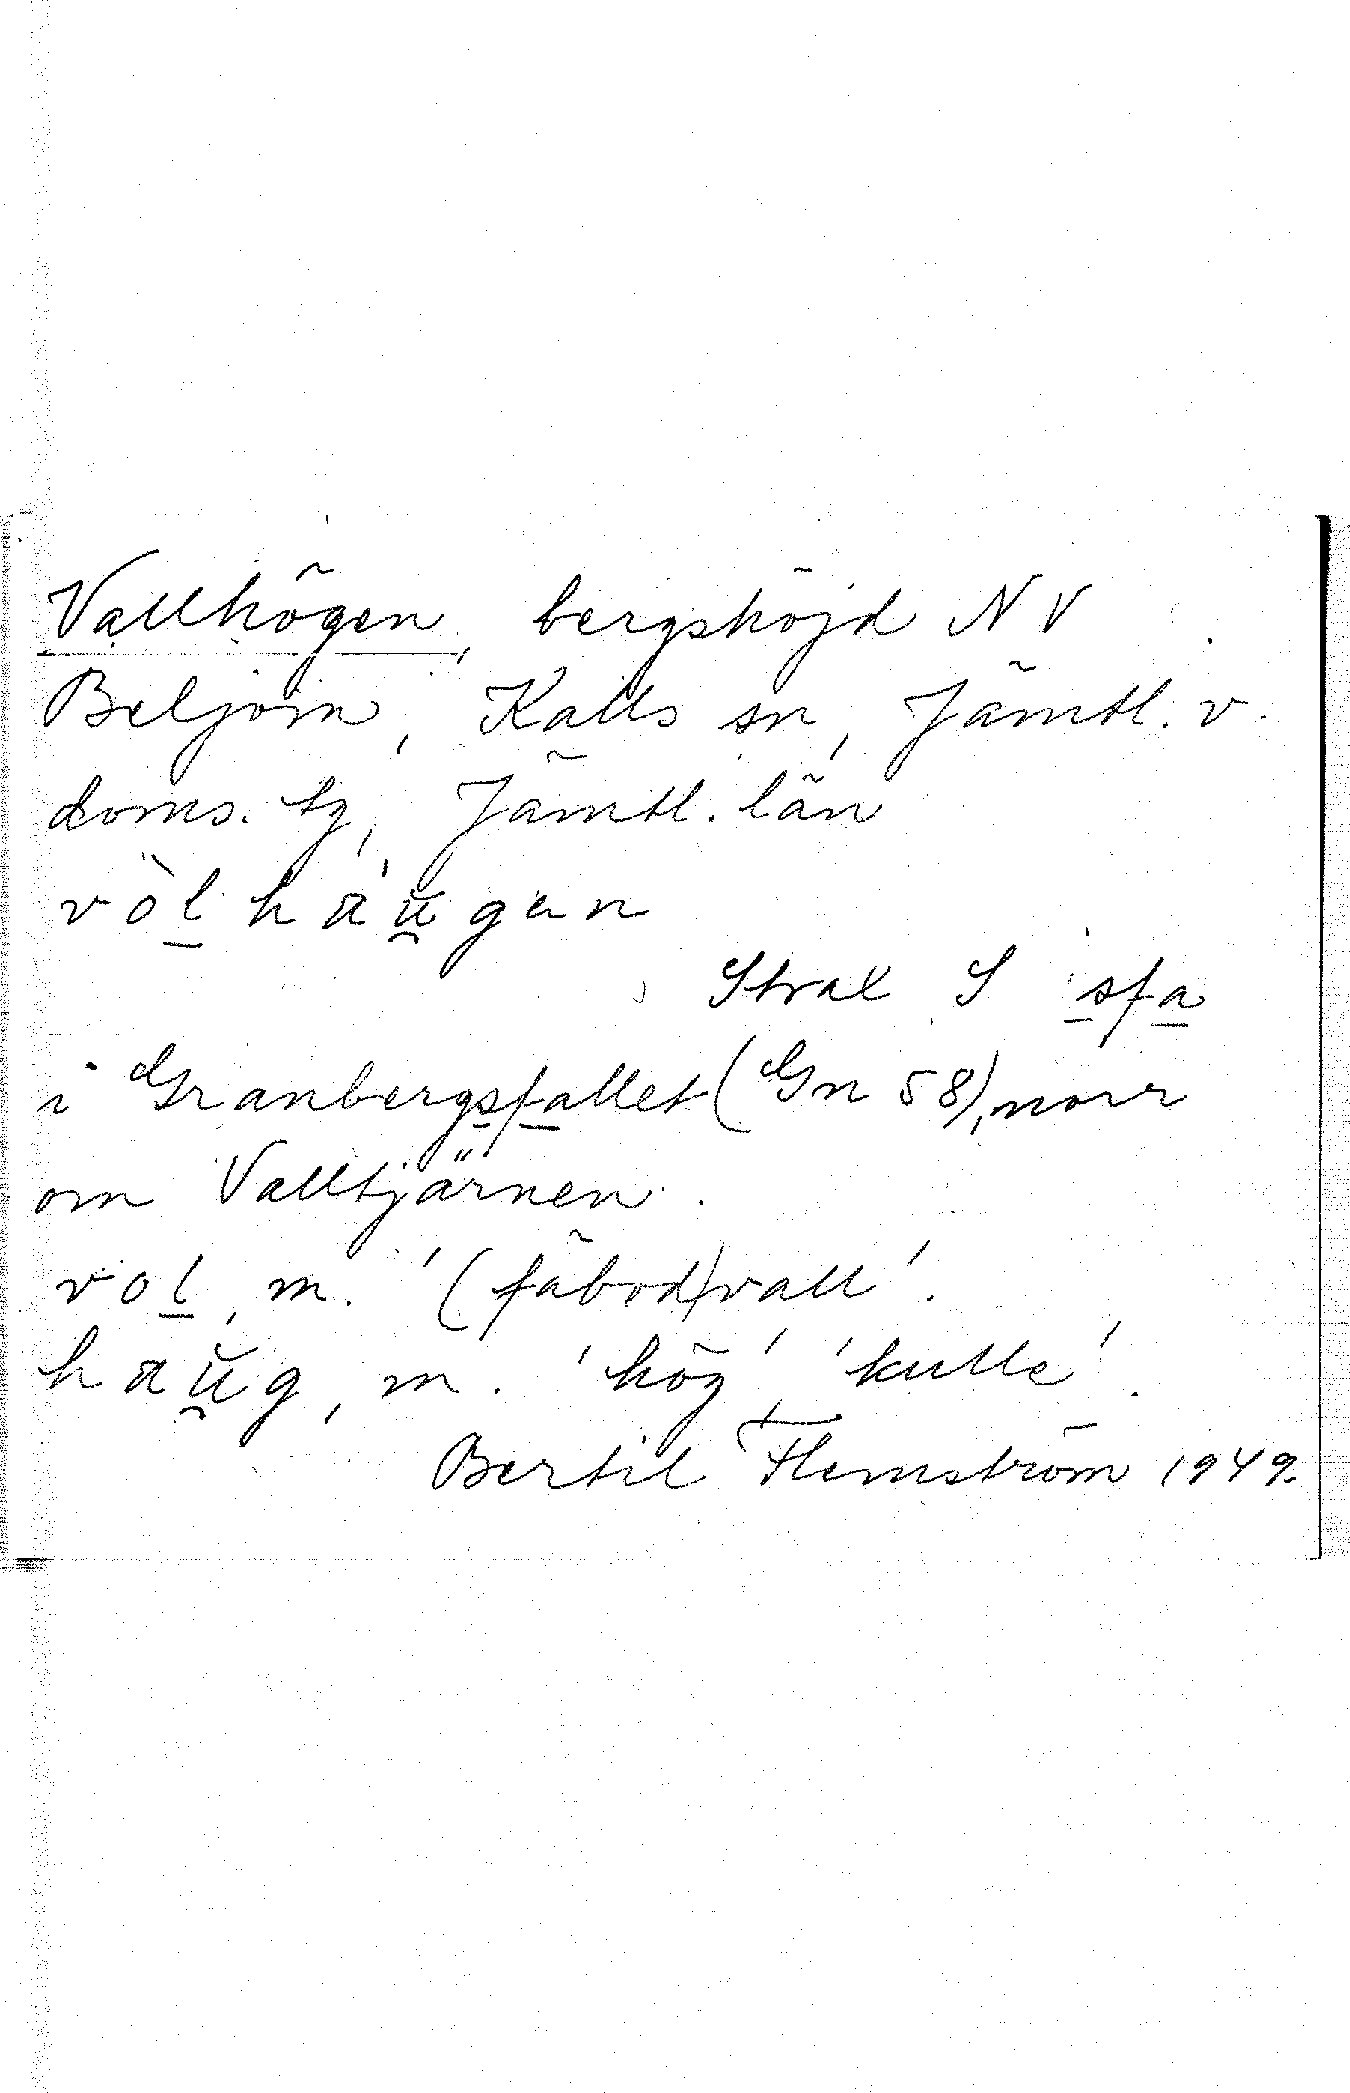 Vallhögen, bergshöjd NV
Beljom, Kalls sn, Jämtl. v.
doms. tg, Jämtl. län
vòl̲háu̯gen
Strax S s̲fa̲
i Granbergs̲fa̲llet (Gn 58), norr
om Valltjärnen.
vol̲, m. '(fäbod)vall'.
hau̯g, m. 'hög', 'kulle'.
Bertil Flemström 1949.